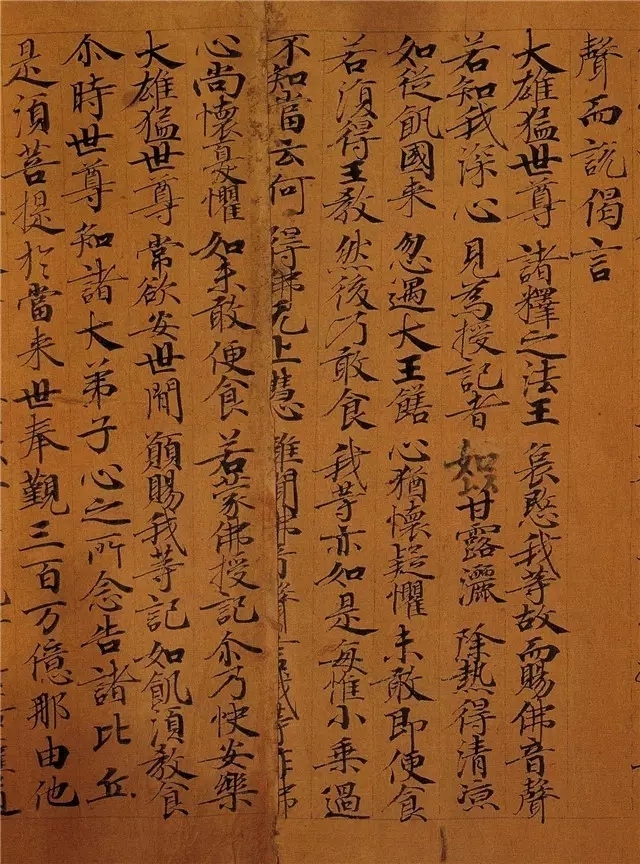 聲而說偈言
大雄猛世尊 諸釋之法王 哀愍我等故 而賜佛音聲
若知我深心 見為授記者 如以甘露灑 除熱得清涼
如從飢國来 忽遇大王饍 心猶懷疑懼 未敢即便食
若湏得王教 然後乃敢食 我等亦如是 每惟小乘過
不知當云何 得佛无上慧 雖聞佛音聲 言我等作佛
心尚懷憂懼 如未敢便食 若蒙佛授記 尒乃快安樂
大雄猛世尊 常欲安世間 願賜我等記 如飢湏教食
尒時世尊知諸大弟子心之所念告諸比丘
是湏菩提於當来世奉覲三百万億那由他